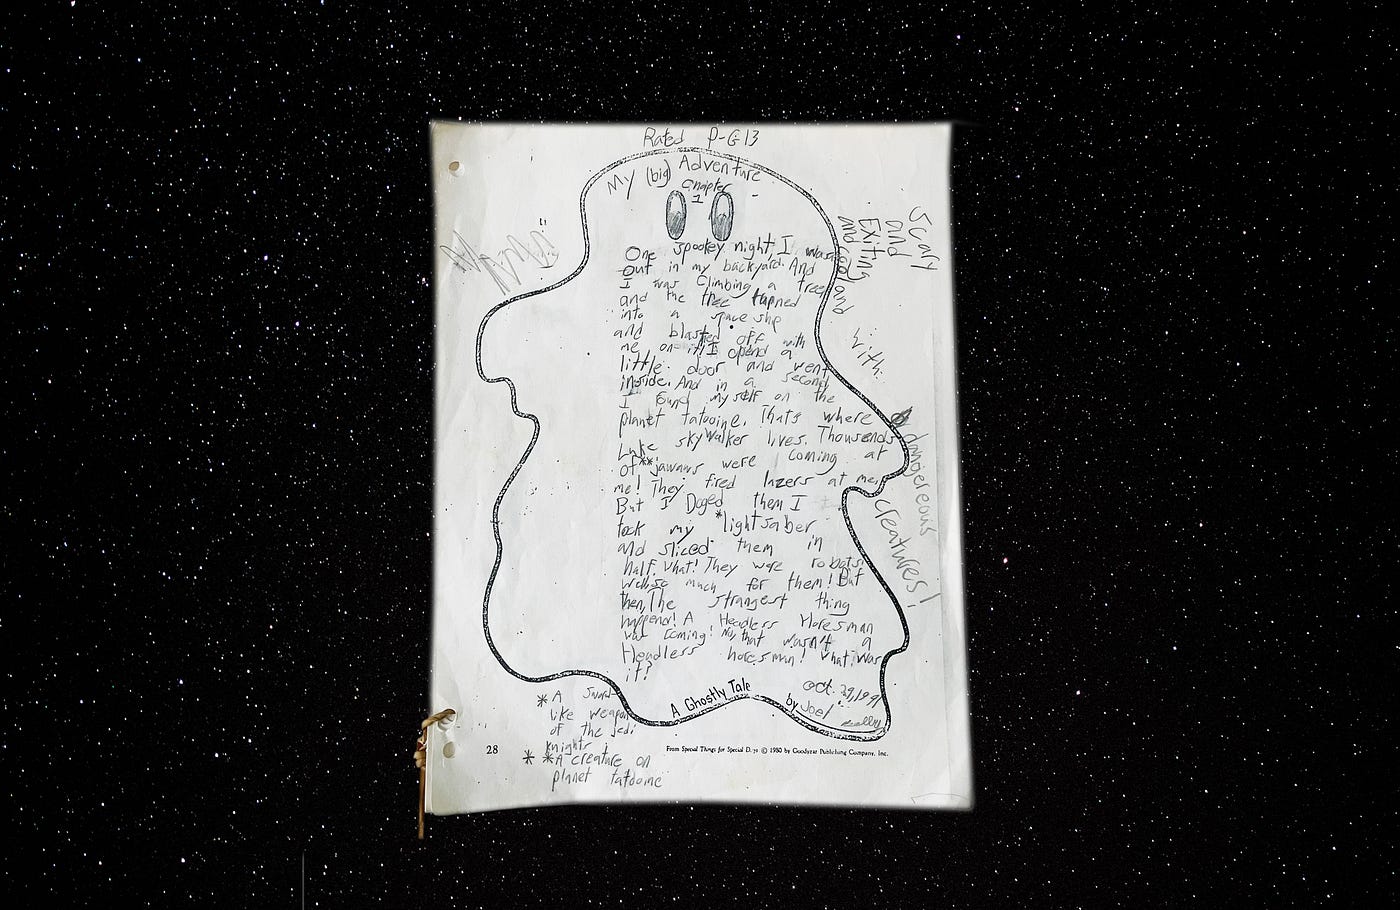 Rated P-G13
My (big) Adventure
Chapter
1
One spooky night, I was
out in my backyard. And
I was Climbing a tree
and the thee turned
into a space ship
and blasted off with
me on it! I opend a
little door and went
inside. And in a second
I found myself on the
planet tatooine. Thats where
Luke skywalker lives. Thousends
of **jawaws were coming at
me! They fired lazers at me!
But I Doged them I
took my *lightsaber
and sliced them in
half. What! They were robots!
Well, so much for them! But
then, The strangest thing
happend! A Headless Horesman
was coming! No, that wasn't a
Headless horesman! What was
it?
A Ghostly Tale
oct. 29, 1991
by Joel
Scary
and
Exiting
and cool and
with
dangereous
creatures!
*A Sword
like weapon
of the jedi
knights
**A creature on
planet tatooine
28
From Special Things for Special Days © 1980 by Goodyear Publishing Company, Inc.